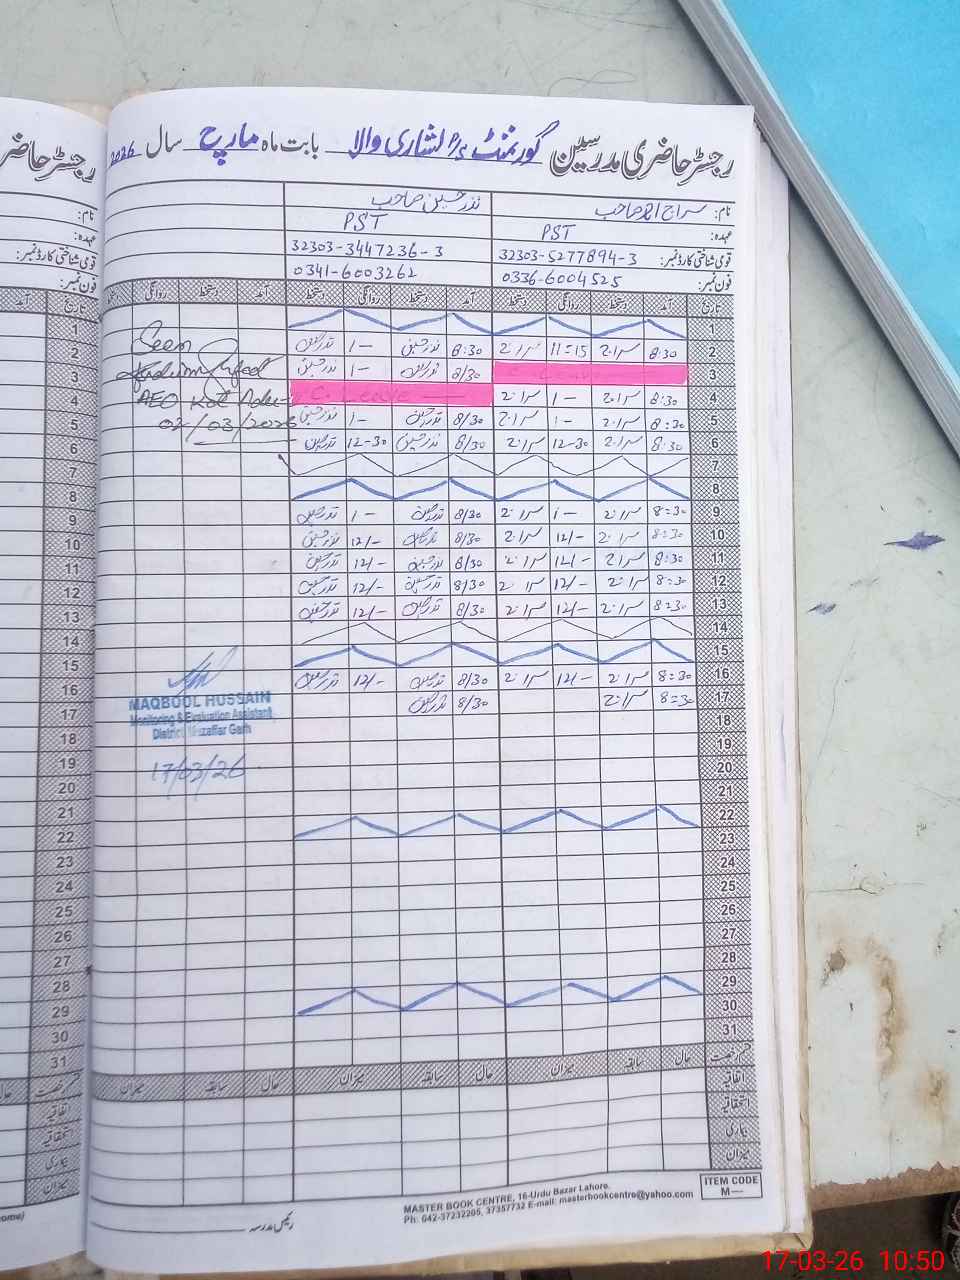 رجسٹر حاضری مدرسین گورنمنٹ P/S لشاری والا بابت ماہ مارچ سال 2026
رجسٹر حاضری
نام: سراج احمد صاحب نذر حسین صاحب
عہدہ: PST PST
قومی شناختی کارڈ نمبر: 32303-5277894-3 32303-3447236-3
فون نمبر: 0336-6004525 0341-6003262
نام:
عہدہ:
قومی شناختی کارڈ نمبر:
فون نمبر:
تاریخ آمد دستخط روانگی دستخط آمد دستخط روانگی دستخط آمد دستخط روانگی دستخط
1
2 8:30 سراج 11=15 سراج 8:30 نذر حسین 1- نذر حسین
3 C. Leave 8/30 نذر حسین 1- نذر حسین
4 8:30 سراج 1- سراج C. Leave
5 8:30 سراج 1- سراج 8/30 نذر حسین 1- نذر حسین
6 8:30 سراج 12-30 سراج 8/30 نذر حسین 12-30 نذر حسین
7
8
9 8=30 سراج 1- سراج 8/30 نذر حسین 1- نذر حسین
10 8=30 سراج 12/- سراج 8/30 نذر حسین 12/- نذر حسین
11 8:30 سراج 12/- سراج 8/30 نذر حسین 12/- نذر حسین
12 8=30 سراج 12/- سراج 8/30 نذر حسین 12/- نذر حسین
13 8=30 سراج 12/- سراج 8/30 نذر حسین 12/- نذر حسین
14
15
16 8=30 سراج 12/- سراج 8/30 نذر حسین 12/- نذر حسین
17 8=30 سراج 8/30 نذر حسین
18
19
20
21
22
23
24
25
26
27
28
29
30
31
Seen
AEO Kot Addu-
02/03/2026
MAQBOOL HUSSAIN
Monitoring & Evaluation Assistant
District Muzaffar Garh
17/03/26
قسم رخصت حال سابقہ میزان حال سابقہ میزان حال سابقہ میزان
اتفاقیہ
استحقاقیہ
بیماری
میزان
رئیس مدرسہ
MASTER BOOK CENTRE, 16-Urdu Bazar Lahore.
Ph: 042-37232205, 37357732 E-mail: masterbookcentre@yahoo.com
ITEM CODE
M—
17-03-26 10:50